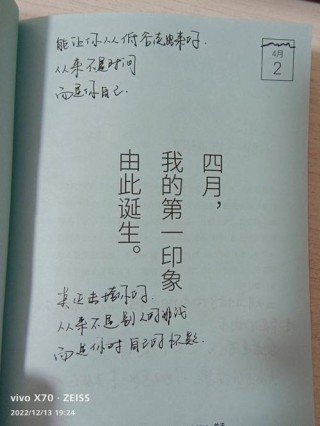 能让你从低谷流出来的.
从来不是时间
而是你自己.
4月
2
四月，
我的第一印象
由此诞生。
真正击垮你的.
从来不是别人的非议
而是你对自己的怀疑.
vivo X70 · ZEISS
2022/12/13 19:24